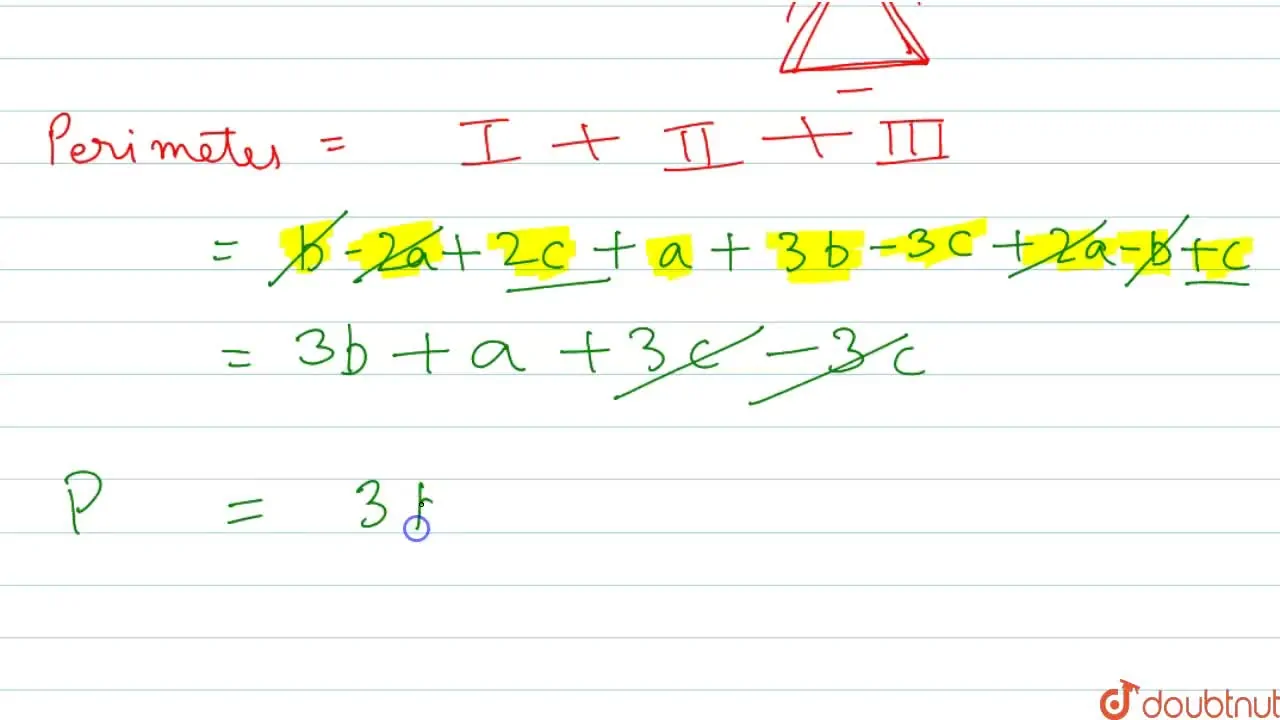 Perimeter = I + II + III
= b - 2a + 2c + a + 3b - 3c + 2a - b + c
= 3b + a + 3c - 3c
P = 3
doubtnut